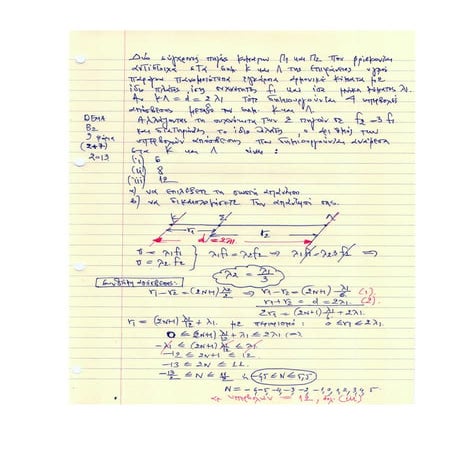 Δύο σύγχρονες πηγές κυμάτων Π1 και Π2 που βρίσκονται
αντίστοιχα στα σημ. Κ και Λ της επιφάνειας υγρού
παράγουν πανομοιότυπα εγκάρσια αρμονικά κύματα με
ίδιο πλάτος, ίσης συχνότητας f1 και ίσου μήκους κύματος λ1.
Αν ΚΛ = d = 2λ1 τότε δημιουργούνται 4 υπερβολές
απόσβεσης μεταξύ των σημ. Κ και Λ.
ΘΕΜΑ
Β2
9 μόρια
(2+7)
2013
Αλλάζοντας τη συχνότητα των 2 πηγών σε f2 = 3f1
και διατηρώντας το ίδιο πλάτος, ο αριθμός των
υπερβολών απόσβεσης που δημιουργούνται ανάμεσα
στα Κ και Λ είναι:
(i) 6
(ii) 8
(iii) 12
α) να επιλέξετε τη σωστή απάντηση
β) να δικαιολογήσετε την απάντησή σας.
Κ Σ Λ
r1 r2
d = 2λ1
υ = λ1f1
υ = λ2f2 ⇒ λ1f1 = λ2f2 ⇒ λ1f1 = λ23f1 ⇒
λ2 = λ1/3
Συνθήκη απόσβεσης:
r1 - r2 = (2N+1) λ2/2 ⇒ r1 - r2 = (2N+1) λ1/6 (1).
r1 + r2 = d = 2λ1 (2).
2r1 = (2N+1) λ1/6 + 2λ1
r1 = (2N+1) λ1/12 + λ1 με περιορισμό: 0 ≤ r1 ≤ 2λ1
0 ≤ (2N+1) λ1/12 + λ1 ≤ 2λ1 ⇔
-λ1 ≤ (2N+1) λ1/12 ≤ λ1
-12 ≤ 2N+1 ≤ 12
-13 ≤ 2N ≤ 11
-13/2 ≤ N ≤ 11/2 ή -6,5 ≤ N ≤ 5,5